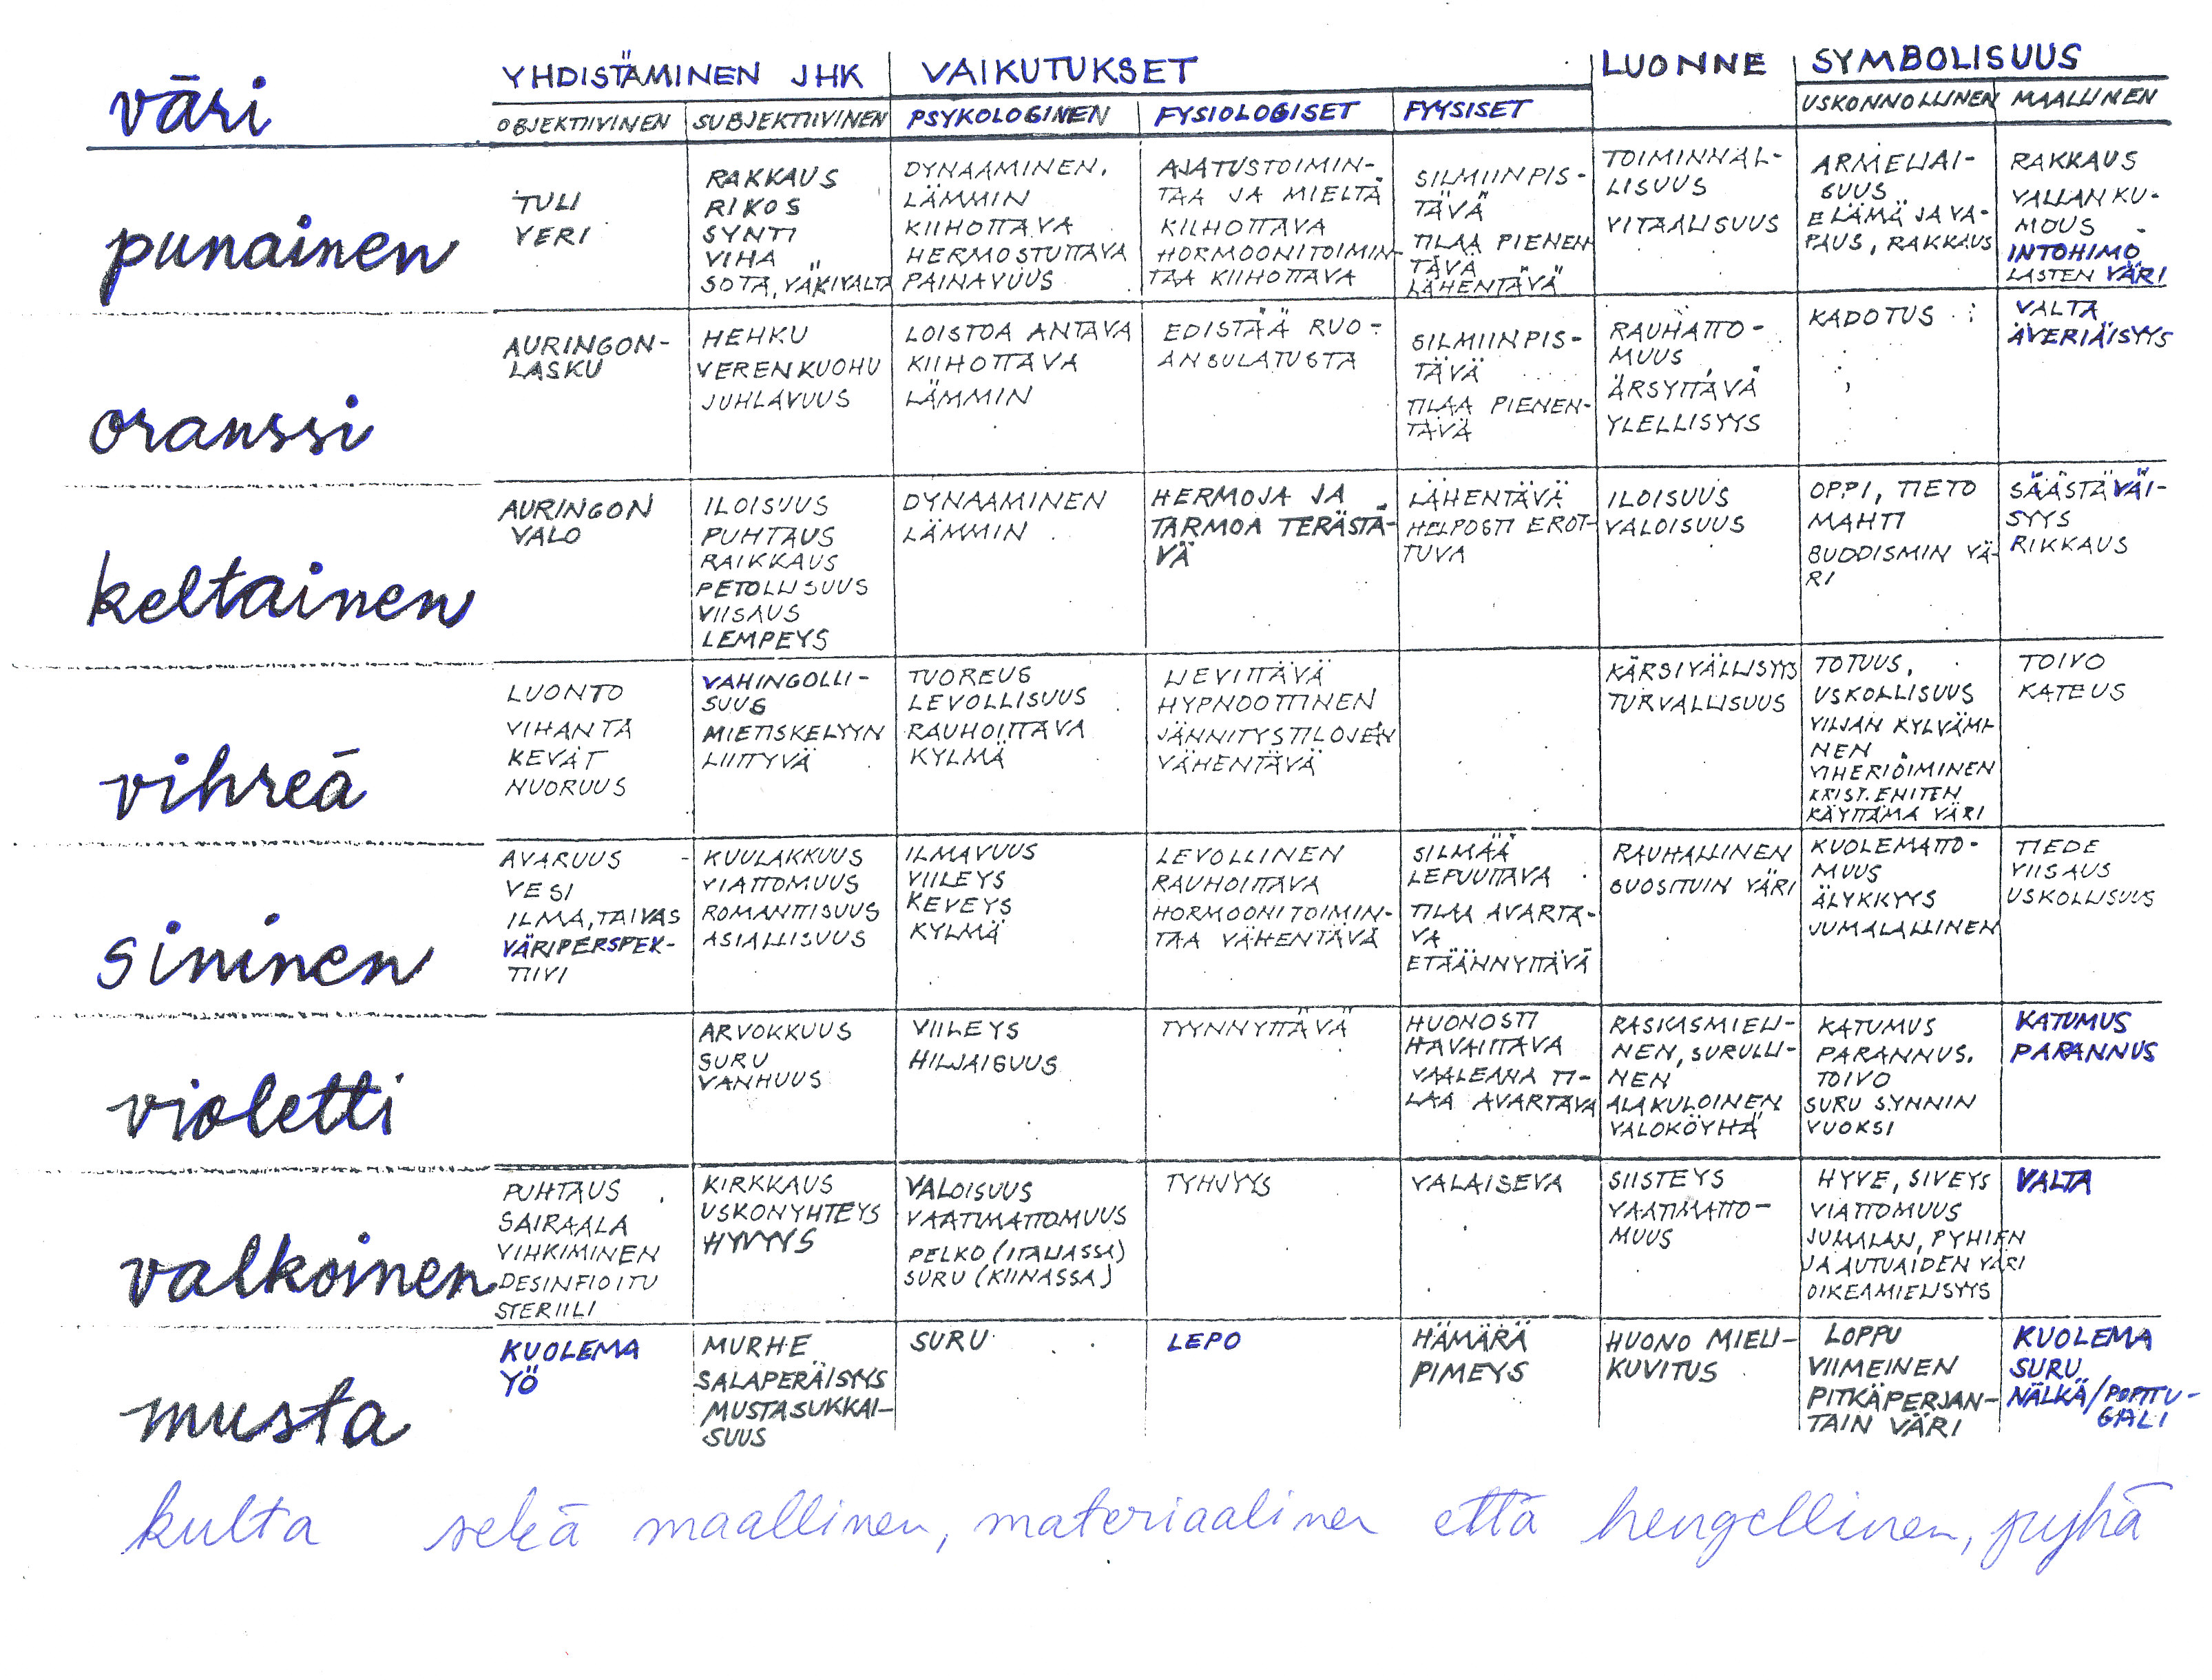 väri
YHDISTÄMINEN JHK
VAIKUTUKSET
LUONNE
SYMBOLISUUS
OBJEKTIIVINEN
SUBJEKTIIVINEN
PSYKOLOGINEN
FYSIOLOGISET
FYYSISET
USKONNOLLINEN
MAALLINEN
punainen
TULI
VERI
RAKKAUS
RIKOS
SYNTI
VIHA
SOTA, VÄKIVALTA
DYNAAMINEN.
LÄMMIN
KIIHOTTAVA
HERMOSTUTTAVA
PAINAVUUS
AJATUSTOIMIN-
TAA JA MIELTÄ
KIIHOTTAVA
HORMOONITOIMIN-
TAA KIIHOTTAVA
SILMIINPIS-
TÄVÄ
TILAA PIENEN
TÄVÄ
LÄHENTÄVÄ
TOIMINNAL-
LISUUS
VITAALISUUS
ARMELIAI-
SUUS
ELÄMÄ JA VA-
PAUS, RAKKAUS
RAKKAUS
VALLANKU-
MOUS
INTOHIMO
LASTEN VÄRI
oranssi
AURINGON-
LASKU
HEHKU
VERENKUOHU
JUHLAVUUS
LOISTOA ANTAVA
KIIHOTTAVA
LÄMMIN
EDISTÄÄ RUO-
ANSULATUSTA
SILMIINPIS-
TÄVÄ
TILAA PIENEN-
TÄVÄ
RAUHATTO-
MUUS
ÄRSYTTÄVÄ
YLELLISYYS
KADOTUS
VALTA
ÄVERIÄISYYS
keltainen
AURINGON
VALO
ILOISUUS
PUHTAUS
RAIKKAUS
PETOLLISUUS
VIISAUS
LEMPEYS
DYNAAMINEN
LÄMMIN
HERMOJA JA
TARMOA TERÄSTÄ-
VÄ
LÄHENTÄVÄ
HELPOSTI EROT-
TUVA
ILOISUUS
VALOISUUS
OPPI, TIETO
MAHTI
BUDDISMIN VÄ-
RI
SÄÄSTÄVÄI-
SYYS
RIKKAUS
vihreä
LUONTO
VIHANTA
KEVÄT
NUORUUS
VAHINGOLLI-
SUUS
MIETISKELYYN
LIITTYVÄ
TUOREUS
LEVOLLISUUS
RAUHOITTAVA
KYLMÄ
LIEVITTÄVÄ
HYPNOOTTINEN
JÄNNITYSTILOJEN
VÄHENTÄVÄ
KÄRSIVÄLLISYYS
TURVALLISUUS
TOTUUS,
USKOLLISUUS
VILJAN KYLVÄMI-
NEN
VIHERIÖIMINEN
KRIST. ENITEN
KÄYTTÄMÄ VÄRI
TOIVO
KATEUS
sininen
AVARUUS
VESI
ILMA, TAIVAS
VÄRIPERSPEK-
TIIVI
KUULAKKUUS
VIATTOMUUS
ROMANTTISUUS
ASIALLISUUS
ILMAVUUS
VIILEYS
KEVEYS
KYLMÄ
LEVOLLINEN
RAUHOITTAVA
HORMOONITOIMIN-
TAA VÄHENTÄVÄ
SILMÄÄ
LEPUUTTAVA
TILAA AVARTA-
VA
ETÄÄNNYTTÄVÄ
RAUHALLINEN
SUOSITUIN VÄRI
KUOLEMATTO-
MUUS
ÄLYKKYYS
JUMALALLINEN
TIEDE
VIISAUS
USKOLLISUUS
violetti
ARVOKKUUS
SURU
VANHUUS
VIILEYS
HILJAISUUS
TYYNNYTTÄVÄ
HUONOSTI
HAVAITTAVA
VAALEANA TI-
LAA AVARTAVA
RASKASMIELI-
NEN, SURULLI-
NEN
ALAKULOINEN
VALOKÖYHÄ
KATUMUS
PARANNUS.
TOIVO
SURU SYNNIN
VUOKSI
KATUMUS
PARANNUS
valkoinen
PUHTAUS
SAIRAALA
VIHKIMINEN
DESINFIOITU
STERIILI
KIRKKAUS
USKONYHTEYS
HYVYYS
VALOISUUS
VAATIMATTOMUUS
PELKO (ITALIASSA)
SURU (KIINASSA)
TYHJYYS
VALAISEVA
SIISTEYS
VAATIMATTO-
MUUS
HYVE, SIVEYS
VIATTOMUUS
JUMALAN, PYHIEN
JA AUTUAIDEN VÄRI
OIKEAMIELISYYS
VALTA
musta
KUOLEMA
YÖ
MURHE
SALAPERÄISYYS
MUSTASUKKAI-
SUUS
SURU
LEPO
HÄMÄRÄ
PIMEYS
HUONO MIELI-
KUVITUS
LOPPU
VIIMEINEN
PITKÄPERJAN-
TAIN VÄRI
KUOLEMA
SURU
NÄLKÄ/PORTU-
GALI
kulta sekä maallinen, materiaalinen että hengellinen, pyhä